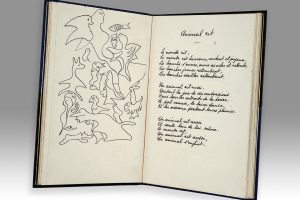 Animal rit
Le monde rit,
Le monde est heureux, content et joyeux
La bouche s'ouvre, ouvre ses ailes et retombe
Les bouches jeunes retombent,
Les bouches vieilles retombent.
Un animal rit aussi,
Étendant la joie de ses contorsions
Dans tous les endroits de la terre.
Le poil remue, la laine danse
Et les oiseaux perdent leurs plumes.
Un animal rit aussi
Et saute loin de lui-même
Le monde rit,
Un animal rit aussi,
Un animal s'enfuit.